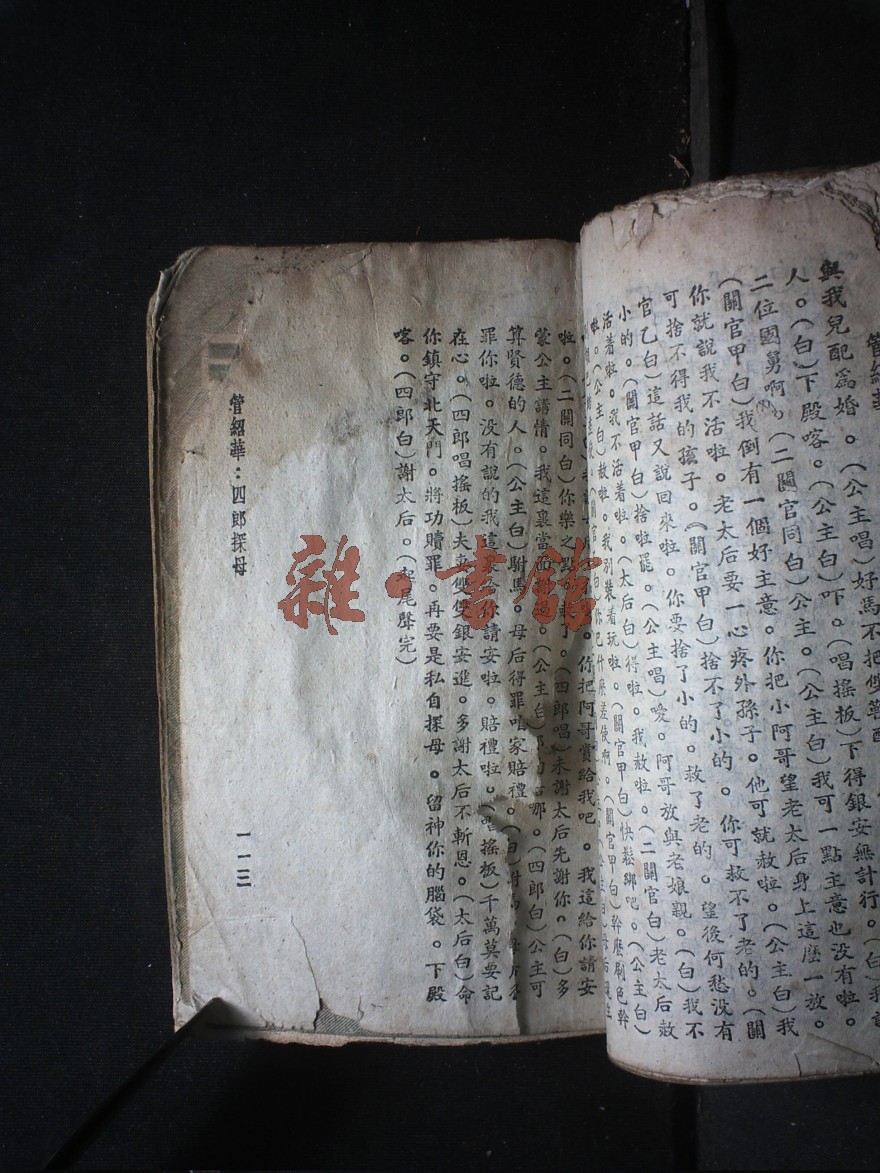 管紹華
與我兒配爲婚。(公主唱)好馬不把雙鞍配
人。(白)下殿喀。(公主白)吓。(唱搖板)下得銀安無計行。(白)我
二位國舅啊。(二關官同白)公主。(公主白)我可一點主意也没有啦。
(關官甲白)我倒有一個好主意。你把小阿哥望老太后身上這麼一放。
你就說我不活啦。老太后要一心疼外孫子。他可就赦啦。(公主白)我
可捨不得我的孩子。(關官甲白)捨不了小的。你可救不了老的。(關
官乙白)這話又說回來啦。你要捨了小的。救了老的。望後何愁没有
小的。(關官甲白)捨啦罷。(公主唱)噯。阿哥放與老娘親。(白)我不
活着啦。我不活着啦。(太后白)得啦。我赦啦。(二關官白)老太后赦
啦。(公主白)赦啦。我別裝着玩啦。(關官甲白)快鬆綁吧。(公主白)
啦。(二關同白)你樂之點。你把阿哥賞給我吧。我這給你請安
啦。(四郎唱)未謝太后先謝你。(白)多
蒙公主講情。我這裏當面。(公主白)哪。(四郎白)公主可
算賢德的人。(公主白)駙馬。母后得罪咱家賠禮。(白)
罪你啦。没有說的我這給你請安啦。賠禮啦。(唱搖板)千萬莫要記
在心。(四郎唱搖板)夫妻雙雙銀安進。多謝太后不斬恩。(太后白)命
你鎮守北天門。將功贖罪。再要是私自探母。留神你的腦袋。下殿
喀。(四郎白)謝太后。(尾聲完)
管紹華：四郎探母
一一三
雜·書館